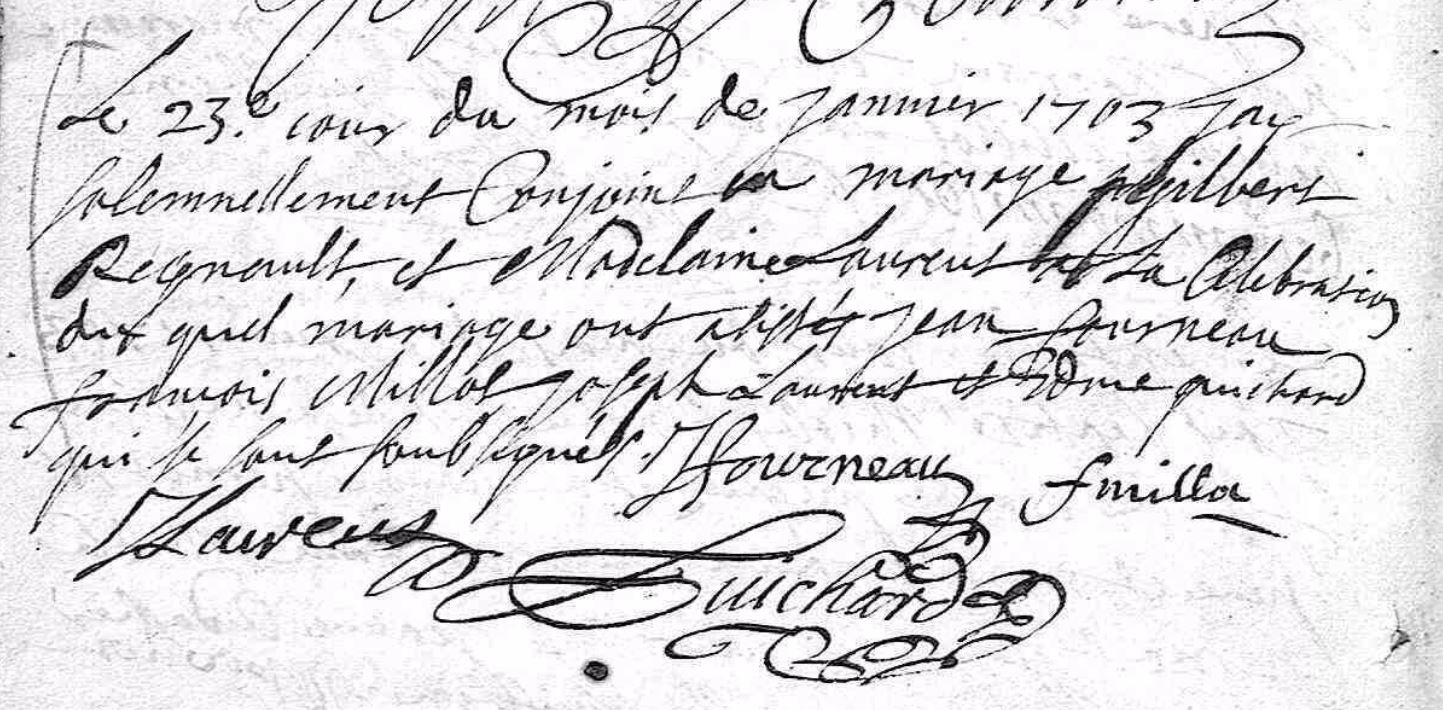 Le 23.e iour du mois de janvier 1703 jay
solemnellement Conjoint en mariage gilbert
Regnault, et Madelaine Laurent a La Celebration
du quel mariage ont assistés jean fourneau
francois Millot joseph Laurent et Edme guichard
qui se sont soubsignés. J fourneau fmilla
J Laurent Guichard